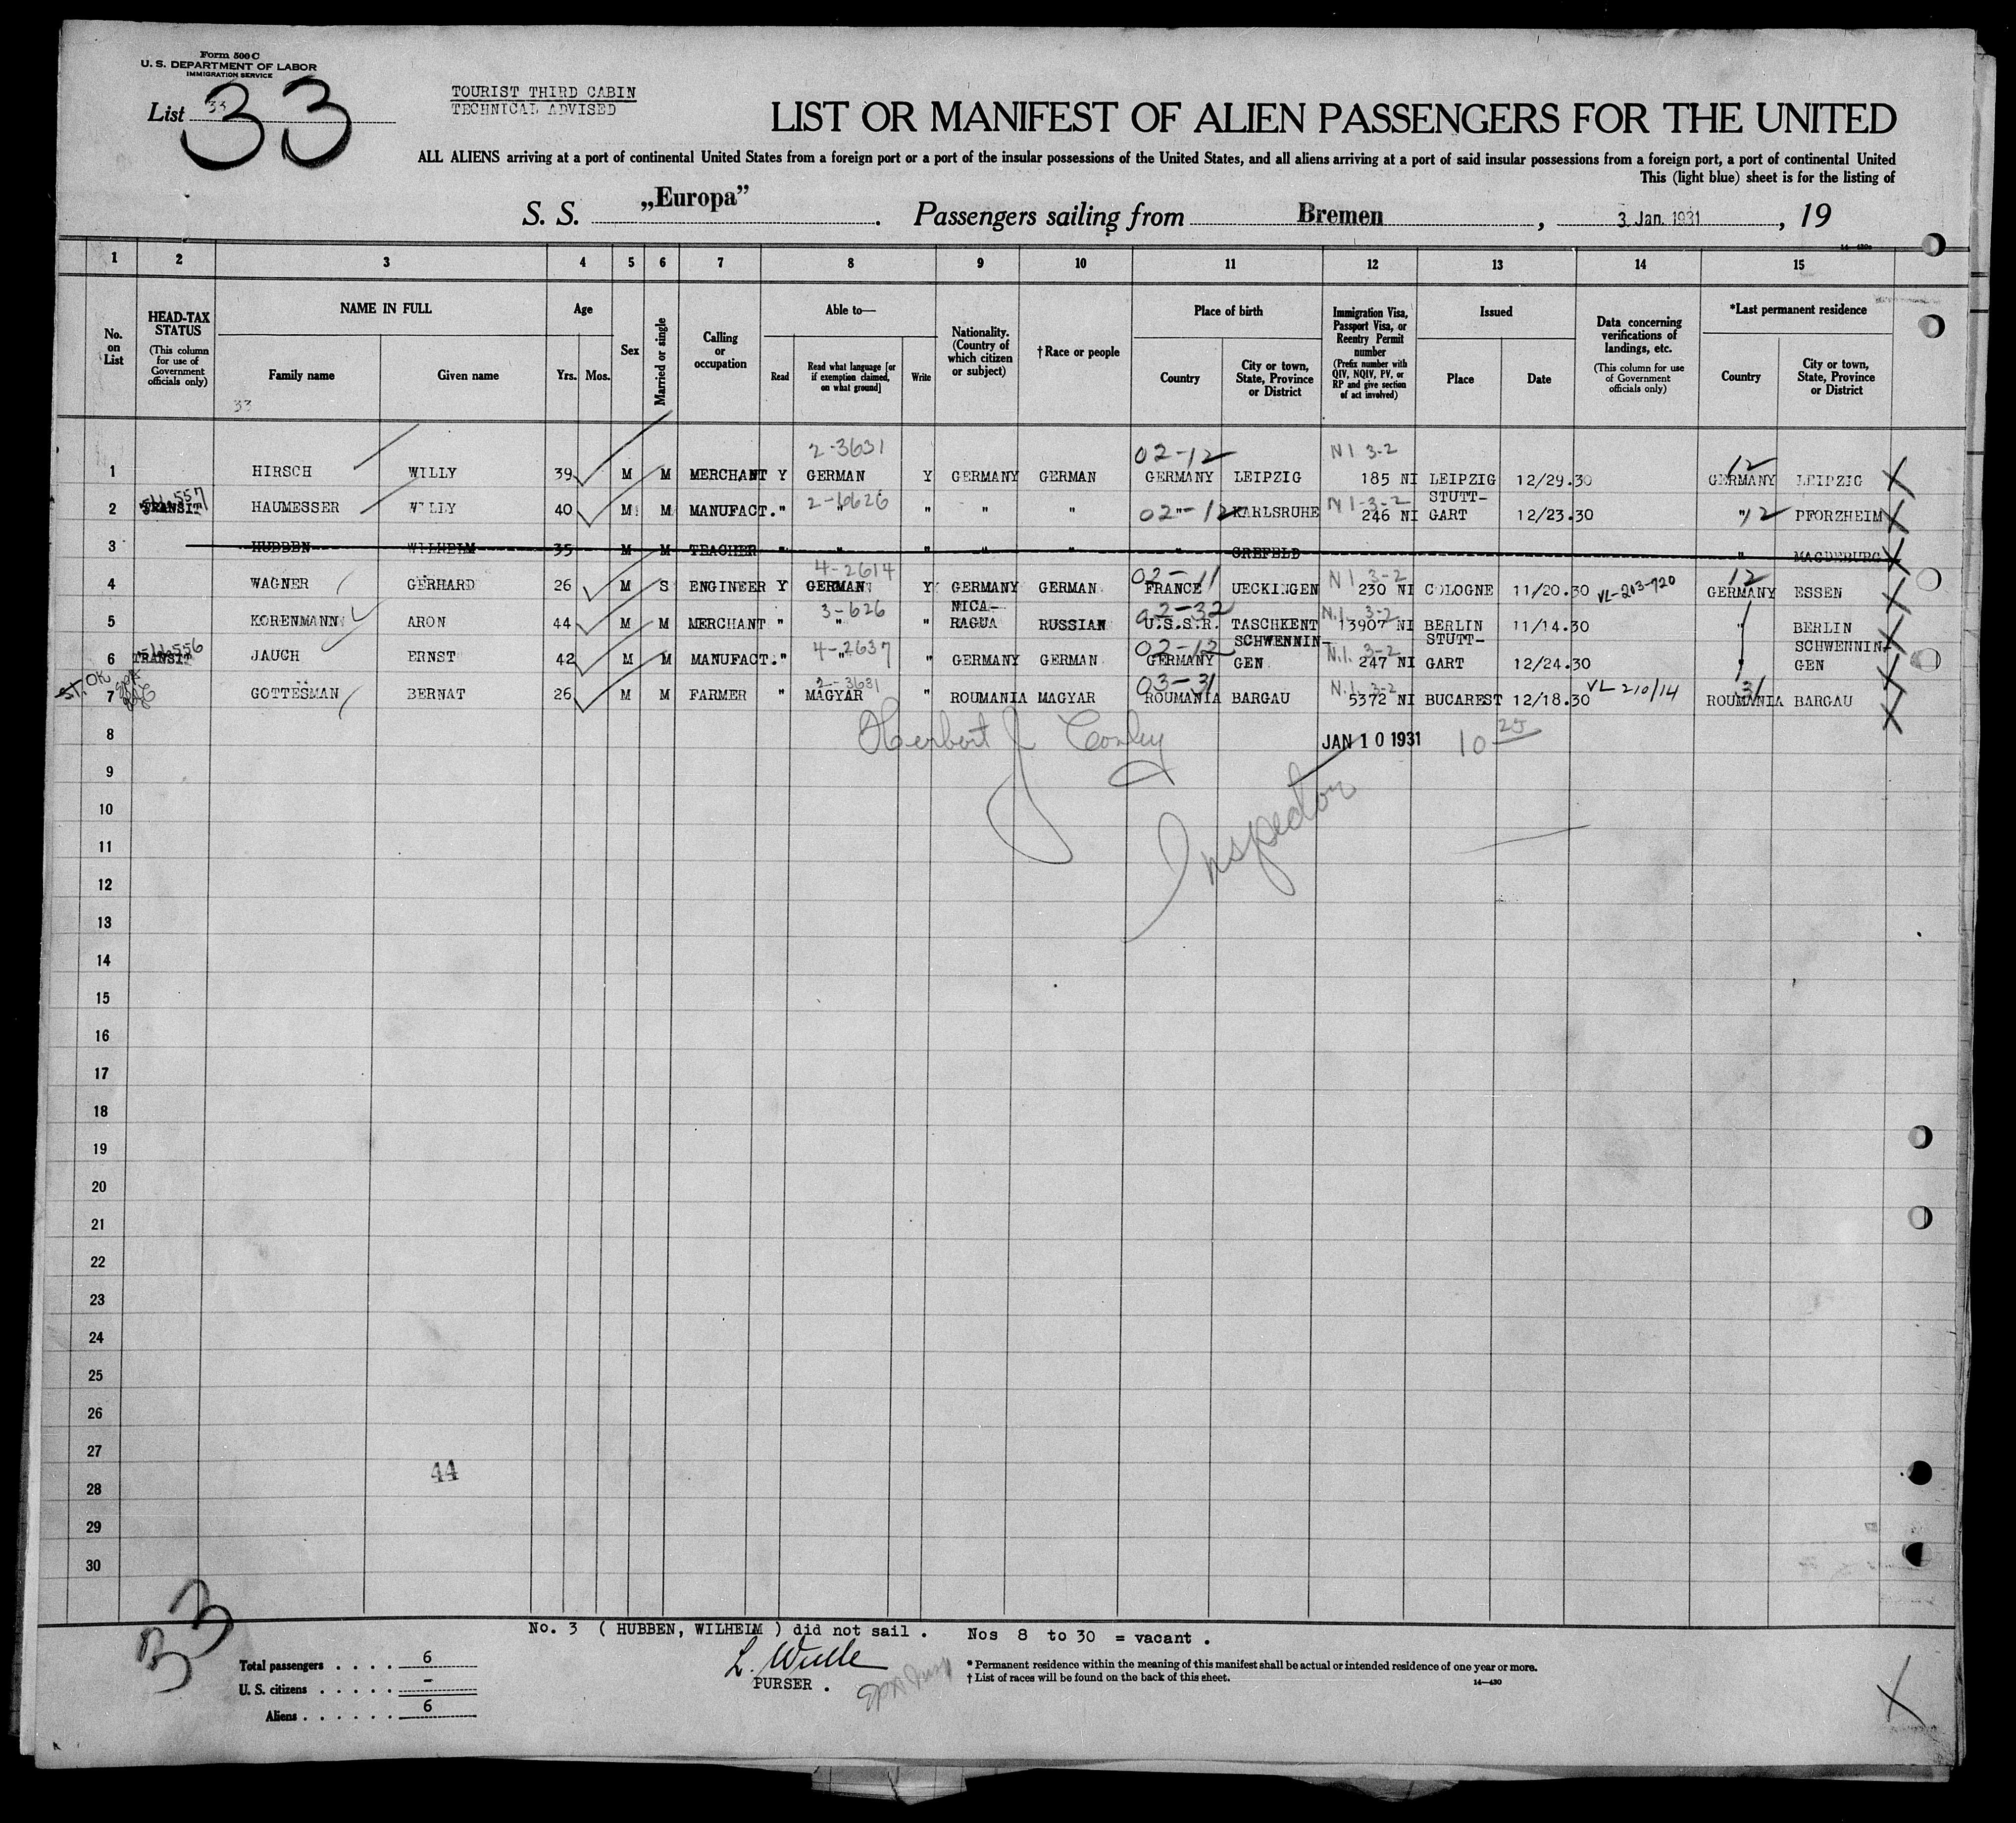 Form 500 C
U. S. DEPARTMENT OF LABOR
IMMIGRATION SERVICE
List 33
33
TOURIST THIRD CABIN
TECHNICAL ADVISED
LIST OR MANIFEST OF ALIEN PASSENGERS FOR THE UNITED
ALL ALIENS arriving at a port of continental United States from a foreign port or a port of the insular possessions of the United States, and all aliens arriving at a port of said insular possessions from a foreign port, a port of continental United
This (light blue) sheet is for the listing of
S. S. „Europa” . Passengers sailing from Bremen , 3 Jan. 1931 , 19
1 2 3 4 5 6 7 8 9 10 11 12 13 14 15
No. on List
HEAD-TAX STATUS (This column for use of Government officials only)
NAME IN FULL Family name Given name
33
Age Yrs. Mos.
Sex
Married or single
Calling or occupation
Able to— Read Read what language [or if exemption claimed, on what ground] Write
Nationality. (Country of which citizen or subject)
† Race or people
Place of birth Country City or town, State, Province or District
Immigration Visa, Passport Visa, or Reentry Permit number (Prefix number with QIV, NQIV, PV, or RP and give section of act involved)
Issued Place Date
Data concerning verifications of landings, etc. (This column for use of Government officials only)
*Last permanent residence Country City or town, State, Province or District
14—430a
2-3631 02-12 N I 3-2 12
1 HIRSCH WILLY 39 M M MERCHANT Y GERMAN Y GERMANY GERMAN GERMANY LEIPZIG 185 NI LEIPZIG 12/29.30 GERMANY LEIPZIG X
511557 2-6626 02-12 N I-3-2 STUTT- 12
2 TRANSIT HAUMESSER WILLY 40 M M MANUFACT. " " " " " " KARLSRUHE 246 NI GART 12/23.30 " PFORZHEIM X
3 HUBBEN WILHELM 35 M M TEACHER " " " " " " CREFELD " MAGDEBURG X
4-2614 02-11 N I 3-2 12
4 WAGNER GERHARD 26 M S ENGINEER Y GERMAN Y GERMANY GERMAN FRANCE UECKINGEN 230 NI COLOGNE 11/20.30 VL-203-720 GERMANY ESSEN X
3-626 NICA- 02-32 N.I. 3-2
5 KORENMANN ARON 44 M M MERCHANT " " " RAGUA RUSSIAN U.S.S.R. TASCHKENT 13907 NI BERLIN 11/14.30 " BERLIN X
511556 4-2637 02-12 SCHWENNIN- N.I. 3-2 STUTT- SCHWENNIN
6 TRANSIT JAUCH ERNST 42 M M MANUFACT. " " " GERMANY GERMAN GERMANY GEN 247 NI GART 12/24.30 " GEN X
ST. OK 2-3631 03-31 N.I. 3-2 31
7 GOTTESMAN BERNAT 26 M M FARMER " MAGYAR " ROUMANIA MAGYAR ROUMANIA BARGAU 5372 NI BUCAREST 12/18.30 VL 210/14 ROUMANIA BARGAU X
8 Herbert J Conley JAN 10 1931 10 25
Inspector
9
10
11
12
13
14
15
16
17
18
19
20
21
22
23
24
25
26
27
44
28
29
30
33
No. 3 ( HUBBEN, WILHELM ) did not sail . Nos 8 to 30 = vacant .
Total passengers . . . . 6
U. S. citizens . . . . . -
Aliens . . . . . . 6
L. Wulle
PURSER .
* Permanent residence within the meaning of this manifest shall be actual or intended residence of one year or more.
† List of races will be found on the back of this sheet.
14—430
X